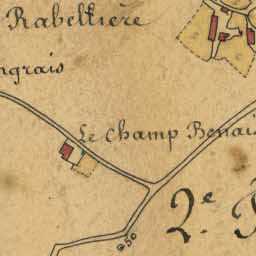 Rabelliere
ngrais
Le Champ Benais
2.e
950